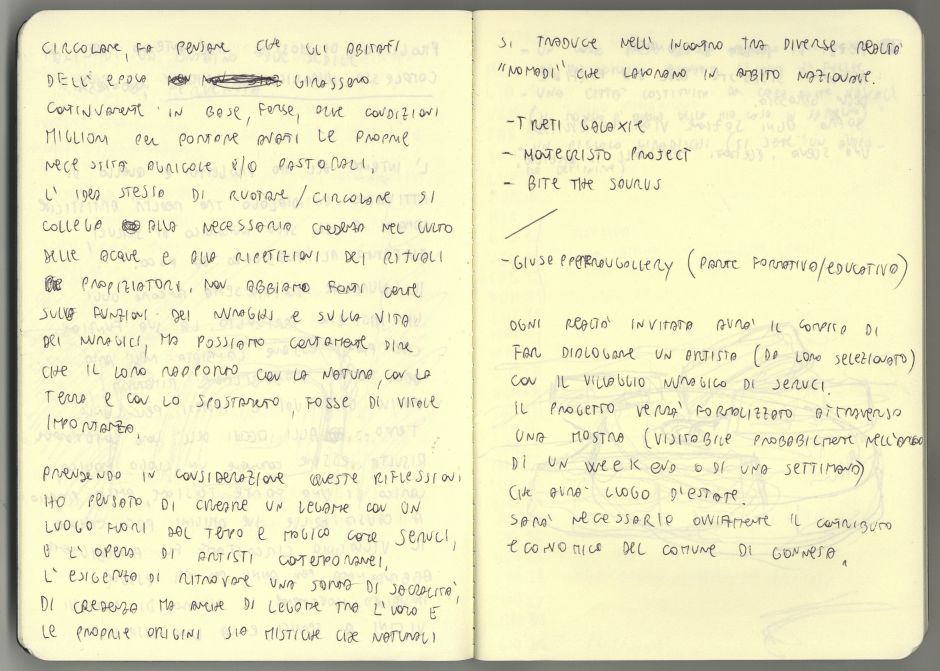 CIRCOLARE, FA PENSARE CHE GLI ABITATI
DELL' EPOCA GIRASSERO
CONTINUAMENTE IN BASE, FORSE, ALLE CONDIZIONI
MIGLIORI PER PORTARE AVATI LE PROPRIE
NECESSITÀ AGRICOLE E/O PASTORALI,
L' IDEA STESSA DI RUOTARE / CIRCOLARE SI
COLLEGA ALLA NECESSARIA CREDENZA NEL CULTO
DELLE ACQUE E ALLA RIPETIZIONI DEI RITUALI
PROPIZIATORI. NON ABBIAMO FONTI CERTE
SULLA FUNZIONI DEI NURAGHI E SULLA VITA
DEI NURAGICI, MA POSSIAMO CERTAMENTE DIRE
CHE IL LORO RAPPORTO CON LA NATURA, CON LA
TERRA E CON LO SPOSTAMETO, FOSSE DI VITALE
IMPORTANZA.
PRENDENDO IN CONSIDERAZIONE QUESTE RIFLESSIONI
HO PENSATO DI CREARE UN LEGAME CON UN
LUOGO FUORI DAL TEMPO E MAGICO COME SERUCI,
E L'OPERA DI ARTISTI CONTEMPORANEI,
L' ESIGENZA DI RITROVARE UNA SORTA DI SACRALITÀ,
DI CREDENZA MA ANCHE DI LEGAME TRA L'UOMO E
LE PROPRIE ORIGINI SIA MISTICHE CHE NATURALI
SI TRADUCE NELL' INCONTRO TRA DIVERSE REALTÀ
"NOMADI" CHE LAVORANO IN AMBITO NAZIONALE.
- TRETI GALAXIE
- MOTECRISTO PROJECT
- BITE THE SAURUS
- GIUSEPPEFRAUGALLERY (PARTE FORMATIVA/EDUCATIVA)
OGNI REALTÀ INVITATA AVRÀ IL COMPITO DI
FAR DIALOGARE UN ARTISTA (DA LORO SELEZIONATO)
CON IL VILLAGGIO NURAGICO DI SERUCI.
IL PROGETTO VERRÀ FORMALIZZATO ATTRAVERSO
UNA MOSTRA (VISITABILE PROBABILMENTE NELL'ARCO
DI UN WEEK END O DI UNA SETTIMANA)
CHE AVRÀ LUOGO D'ESTATE.
SARÀ NECESSARIO OVVIAMENTE IL CONTRIBUTO
ECONOMICO DEL COMUNE DI GONNESA.